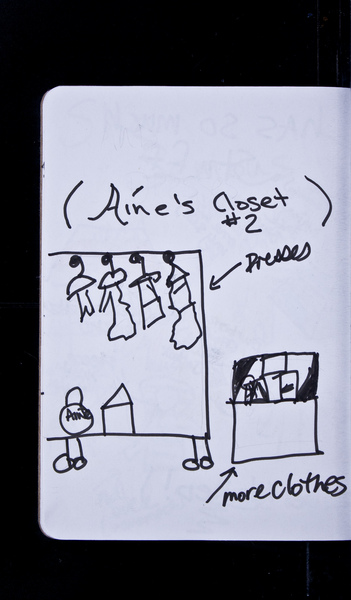 (Aine's Closet
#2)
Dresses
Aine
more clothes